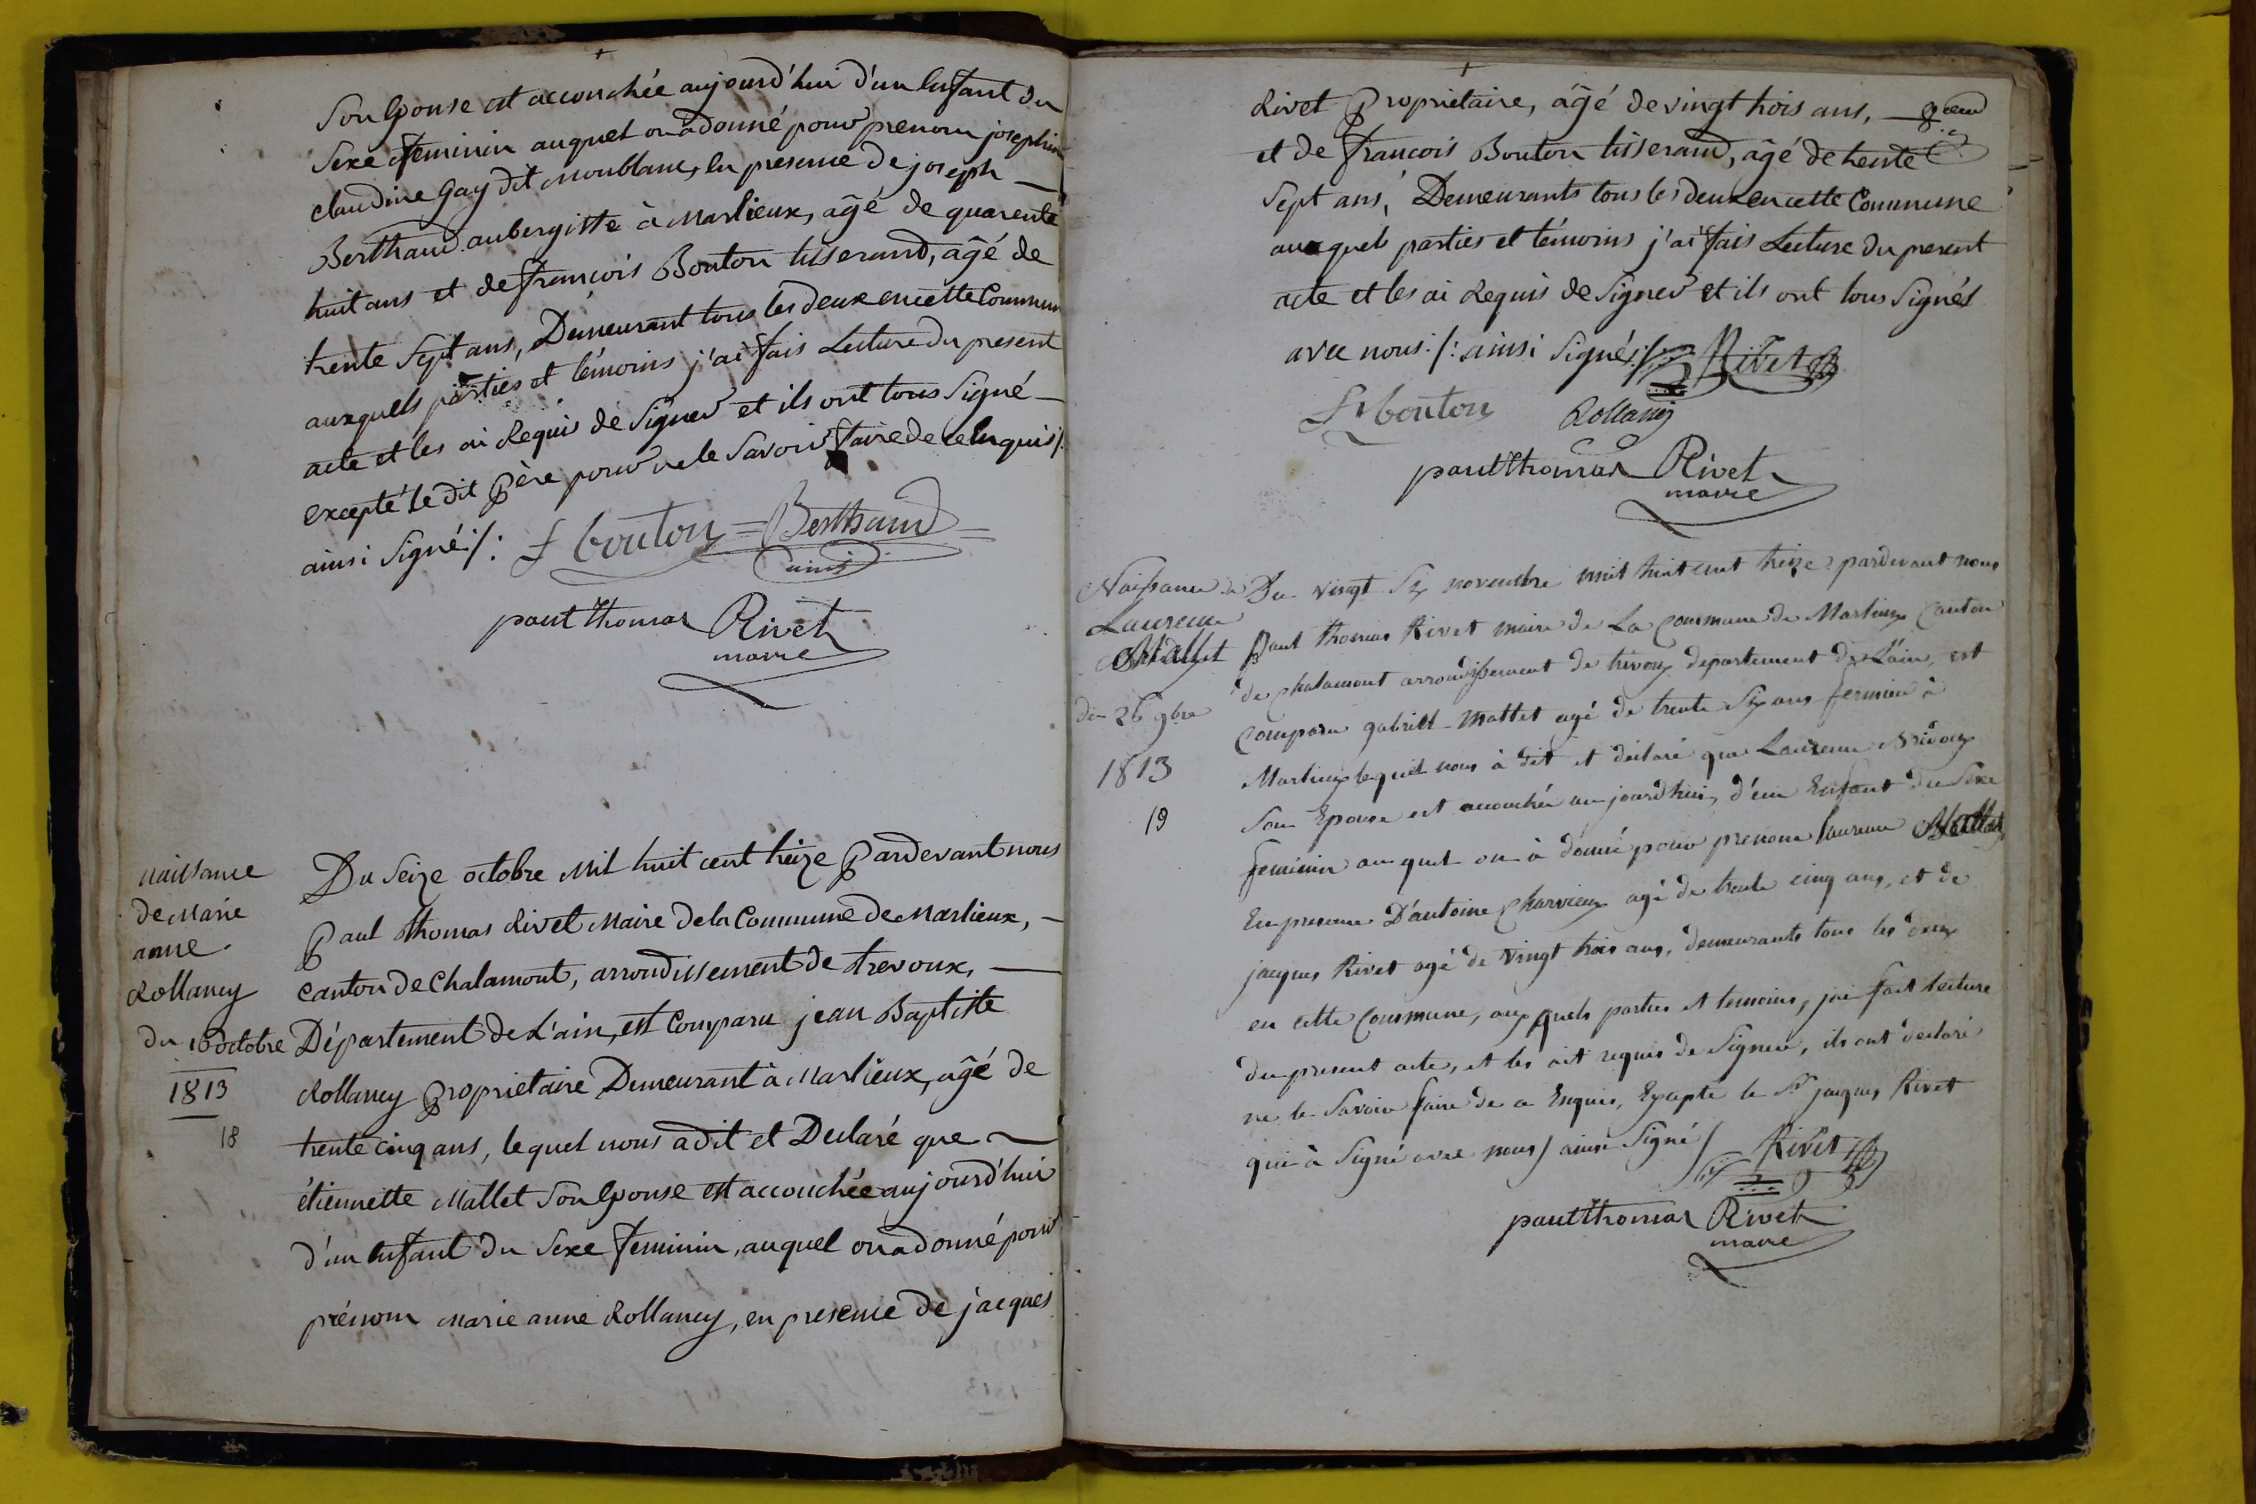 Son Epouse est accouchée aujourd'hui d'un Enfant du
Sexe feminin auquel on a donné pour prenom josephine
claudine Gay dit Monblanc, En presence de joseph —
Berthaud aubergiste à Marlieux, âgé de quarente
huit ans et de françois Bouton tisserand, âgé de
trente Sept ans, Demeurant tous les deux en cette Commune
auxquels parties et témoins j'ai fais Lecture du present
acte et les ai Requis de Signer et ils ont tous Signé —
excepté le dit père pour ne le Savoir faire de ce Enquis/.
ainsi Signé :/: f bouton = Berthaud =
ainé
paul thomas Rivet
maire
naissance
de Marie
anne
Rollancy
du 16 octobre
1813
18
Du Seize octobre Mil huit cent treize Pardevant nous
Paul thomas Rivet Maire de la Commune de Marlieux, —
canton de Chalamont, arrondissement de trevoux, —
Département de L'ain, est Comparu jean Baptiste
Rollancy Proprietaire Demeurant à Marlieux, âgé de
trente cinq ans, lequel nous a dit et Declaré que —
étiennette Mallet Son Epouse est accouchée aujourd'hui
d'un Enfant du Sexe feminin, auquel on a donné pour
prénom Marie anne Rollancy, en presence de jacques
Rivet Proprietaire, âgé de vingt trois ans, —
et de francois Bouton tisserand, âgé de trente
Sept ans, Demeurants tous les deux en cette Commune
auxquels parties et témoins j'ai fais Lecture du present
acte et les ai Requis de Signer et ils ont tous Signés
avec nous :/: ainsi Signés :/: Rivet
f bouton Rollancy
paul thomas Rivet
maire
Naissance de
Laurence
Mallet
du 26 9bre
1813
19
Du vingt Six novembre mil huit cent treize pardevant nous
Paul thomas Rivet maire de La Commune de Marlieux Canton
de chalamont arrondissement de trévoux departement de L'ain, est
Comparu gabriel Mallet agé de trente Six ans fermier à
Marlieux lequel nous à dit et déclaré que Laurence
Son Epouse est accouchée aujourdhui, d'un Enfant du Sexe
feminin auquel on à donné pour prenom Laurence Mallet
En presence D'antoine Charvieux agé de trente cinq ans, et de
jacques Rivet agé de Vingt trois ans, demeurants tous les deux
en cette Commune, auxquels parties et temoins, jai fait lecture
du present acte, et les ait requis de Signer, ils ont declaré
ne le Savoir faire de ce Enquis, Excepté le Sr jacques Rivet
qui à Signé avec nous / ainsi Signé / Rivet
paul thomas Rivet
maire